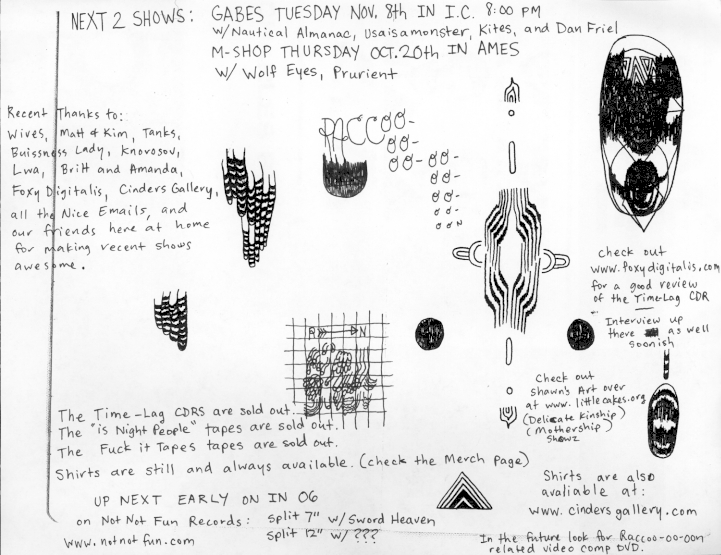 NEXT 2 SHOWS: GABES TUESDAY NOV. 8th IN I.C. 8:00 PM
W/Nautical Almanac, Usaisamonster, Kites, and Dan Friel
M-SHOP THURSDAY OCT. 20th IN AMES
W/ Wolf Eyes, Prurient
Recent Thanks to:
Wives, Matt & Kim, Tanks,
Buissness Lady, Knovosov,
Lwa, Britt and Amanda,
Foxy Digitalis, Cinders Gallery,
all the Nice Emails, and
our friends here at home
for making recent shows
awesome.
RACCOO-
OO-
OO-OO-
OO-
OO-
OO-
OON
check out
www.foxydigitalis.com
for a good review
of the Time-Lag CDR
Interview up
there as well
soonish
R N
Check out
Shawn's Art over
at www.littlecakes.org
(Delicate Kinship)
(Mothership)
Showz
The Time-Lag CDRS are sold out.
The "is Night People" tapes are sold out.
The Fuck it Tapes tapes are sold out.
Shirts are still and always available. (check the Merch page)
UP NEXT EARLY ON IN 06
on Not Not Fun Records: Split 7" w/ Sword Heaven
www.notnotfun.com Split 12" w/ ???
Shirts are also
avaliable at:
www.cindersgallery.com
In the future look for Raccoo-oo-oon
related video comp DVD.